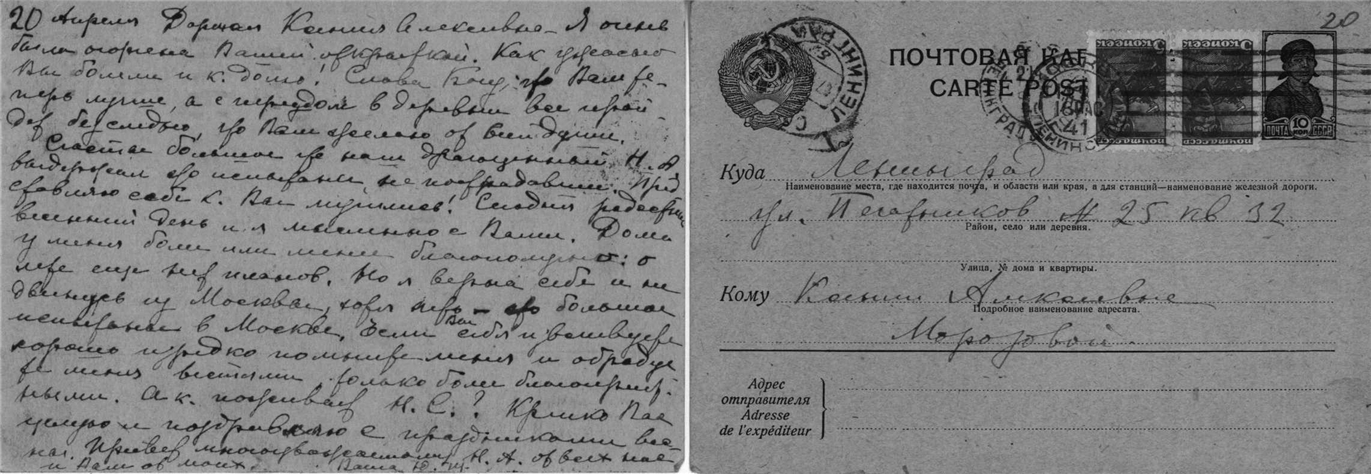 20 Апреля Дорогая Ксения Алексеевна – Я очень
была огорчена Вашей открыткой. Как ужасно
Вы болели и к. долго! Слава Богу, что Вам те-
перь лучше, а с переездом в деревню все прой-
дет бесследно, что Вам желаю от всей души.
Счастье большое что наш драгоценный Н. А
выдержал это испытание, не пострадавши. Пред
ставляю себе к. Вы мучились! Сегодня радостный
весенний день и я мысленно с Вами. Дома
у меня более или менее благополучно: о
лете еще нет планов. Но я верна себе и не
двинусь из Москвы, хотя лето – это большое
испытание в Москве. Если Вы себя чувствуете
хорошо изредка помните меня и обрадуй
те меня вестями только более благоприят-
ными. А к. поживает Н. С.? Крепко Вас
целую и поздравляю с праздниками весе-
на. Привет многоуважаемому Н. А. от всех нас
и Вам от моих. Ваша
20
ПОЧТОВАЯ КАР
CARTE POST
ЛЕНИНГРАД
5 КОПЕЕК
5 КОПЕЕК
10 КОП
ПОЧТА СССР
41
Куда Ленинград
Наименование места, где находится почта, и области или края, а для станций—наименование железной дороги.
ул. Печатников № 25 кв 32
Район, село или деревня.
Улица, № дома и квартиры.
Кому Ксении Алексеевне
Подробное наименование адресата.
Морозовой
Адрес
отправителя
Adresse
de l'expéditeur